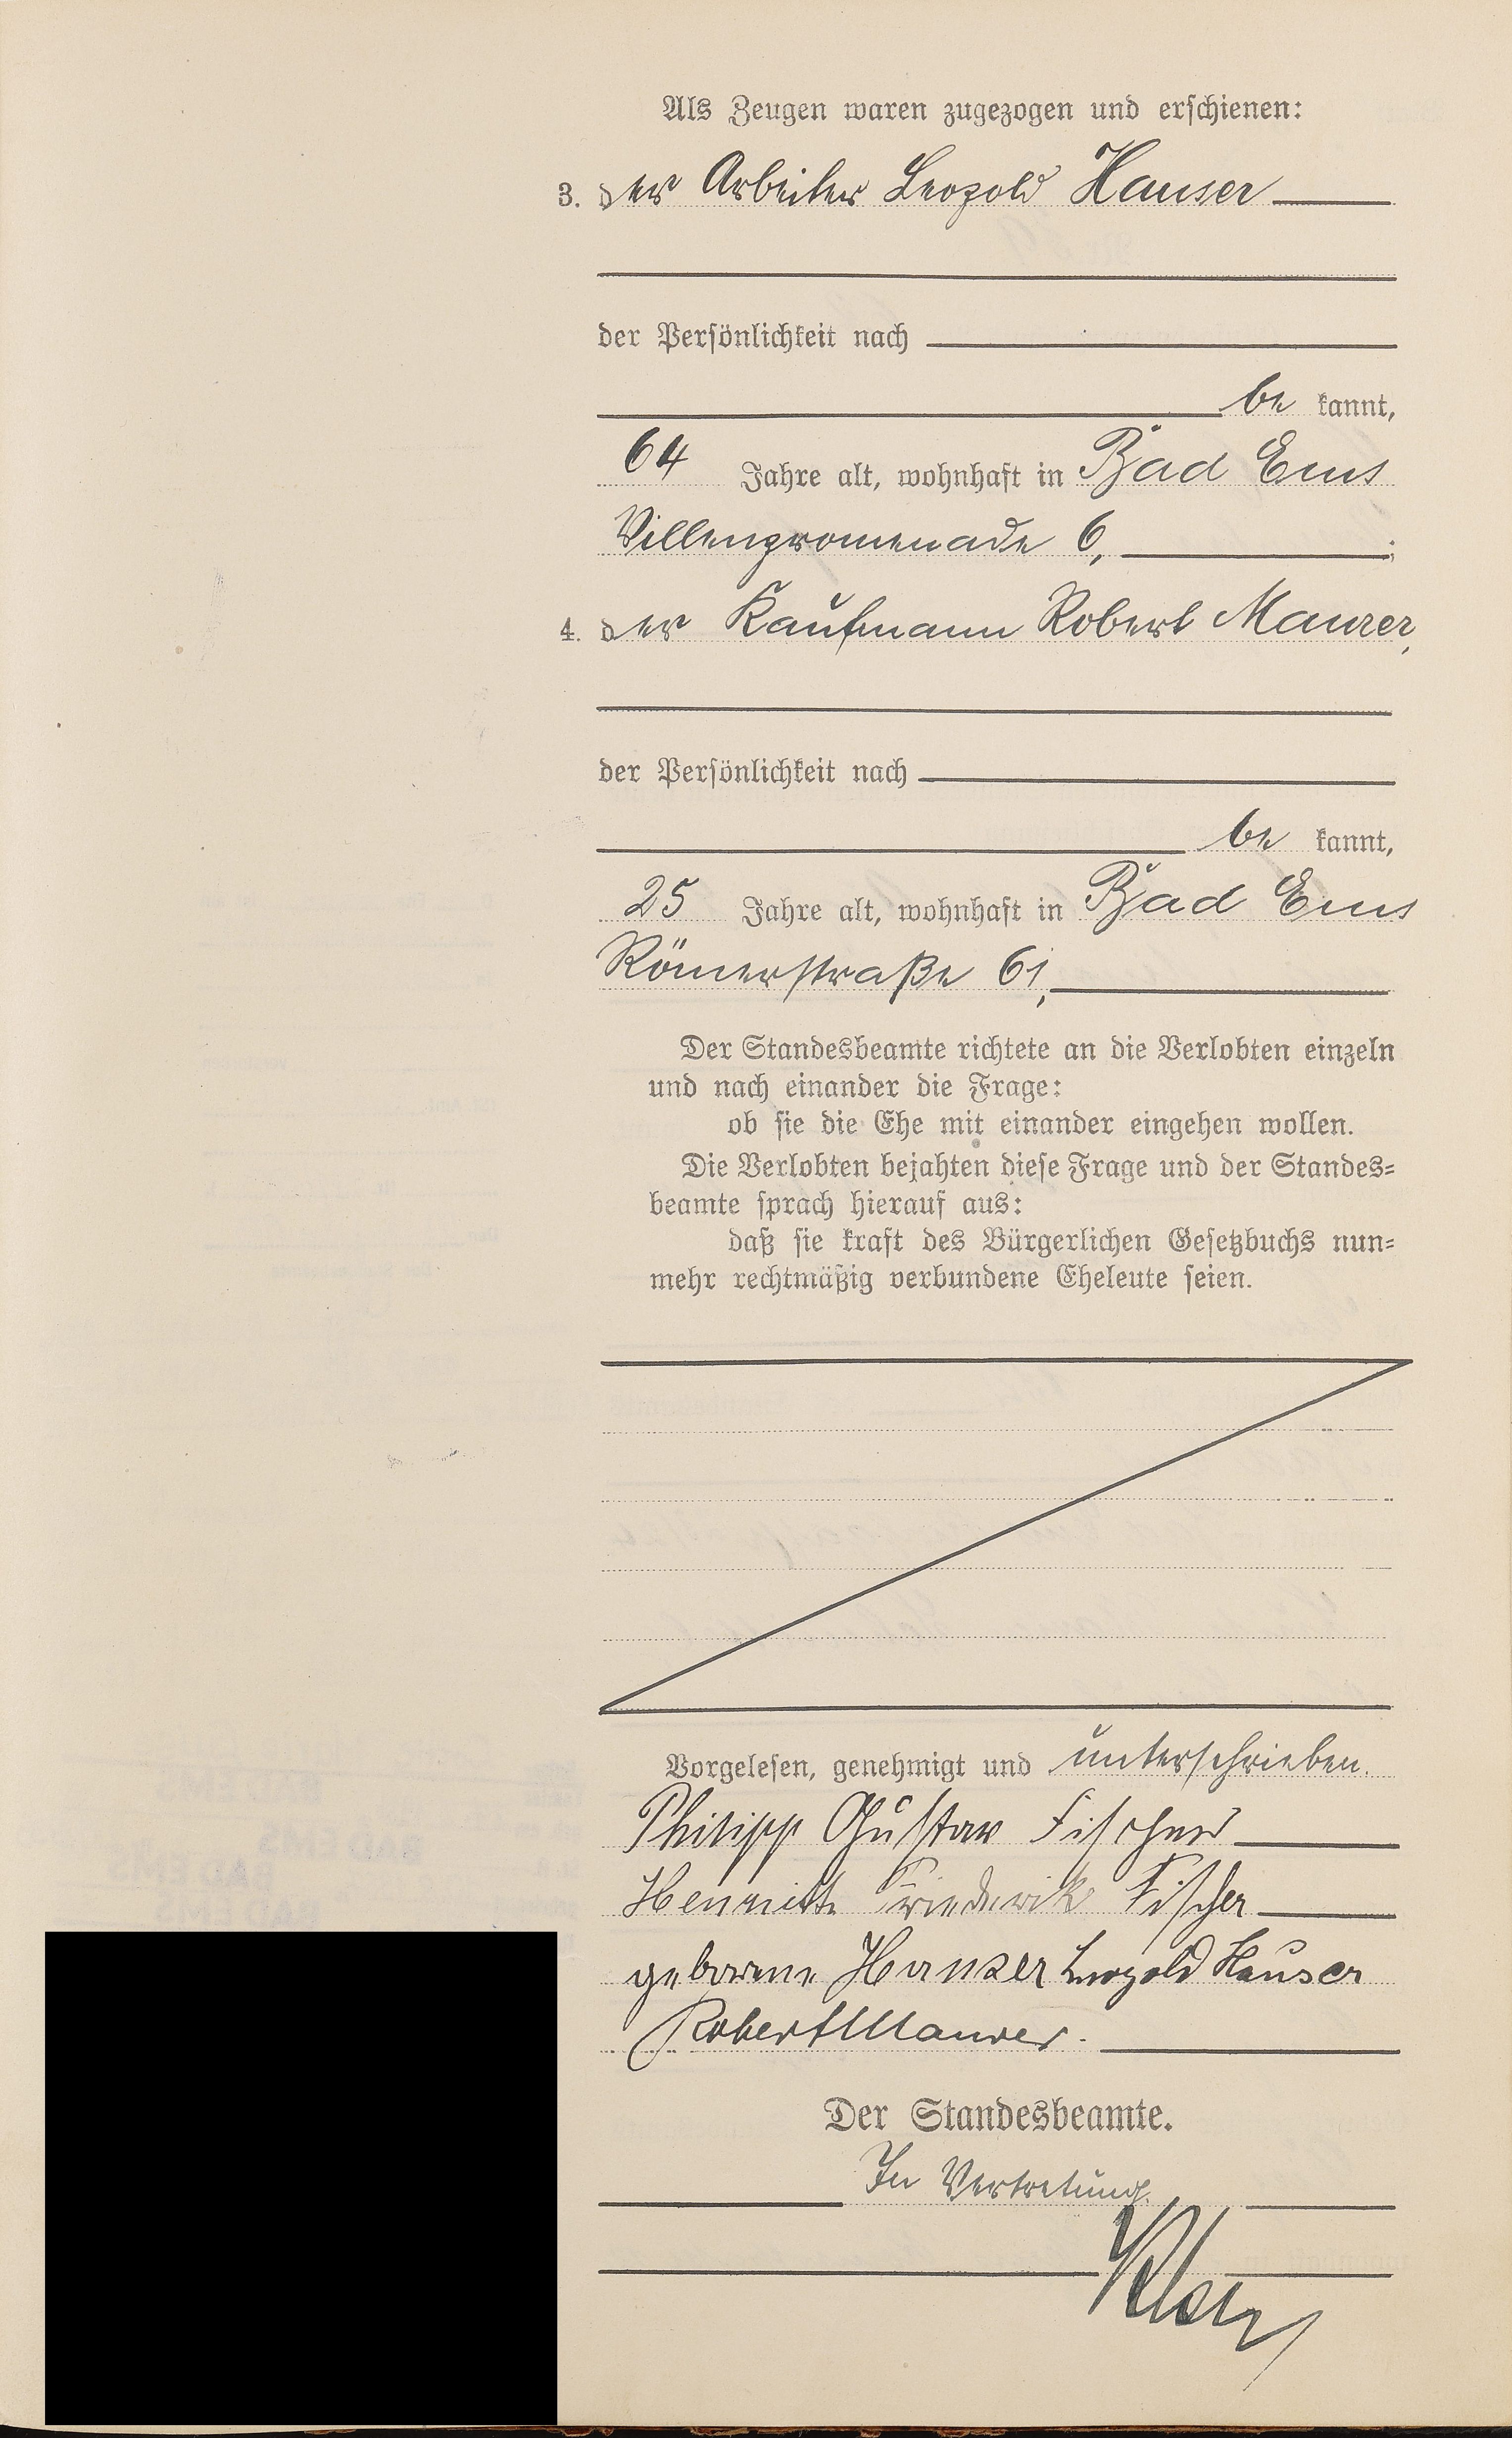 Als Zeugen waren zugezogen und erschienen:
3. der Arbeiter Leopold Hauser
der Persönlichkeit nach
be kannt,
64 Jahre alt, wohnhaft in Bad Ems
Villenpromenade 6, ;
4. der Kaufmann Robert Maurer,
der Persönlichkeit nach
be kannt,
25 Jahre alt, wohnhaft in Bad Ems
Römerstraße 61,
Der Standesbeamte richtete an die Verlobten einzeln
und nach einander die Frage:
ob sie die Ehe mit einander eingehen wollen.
Die Verlobten bejahten diese Frage und der Standes-
beamte sprach hierauf aus:
daß sie kraft des Bürgerlichen Gesetzbuchs nun-
mehr rechtmäßig verbundene Eheleute seien.
Vorgelesen, genehmigt und unterschrieben.
Philipp Gustav Fischer
Henriette Friederike Fischer
geborene Hauser Leopold Hauser
Robert Maurer.
Der Standesbeamte.
In Vertretung